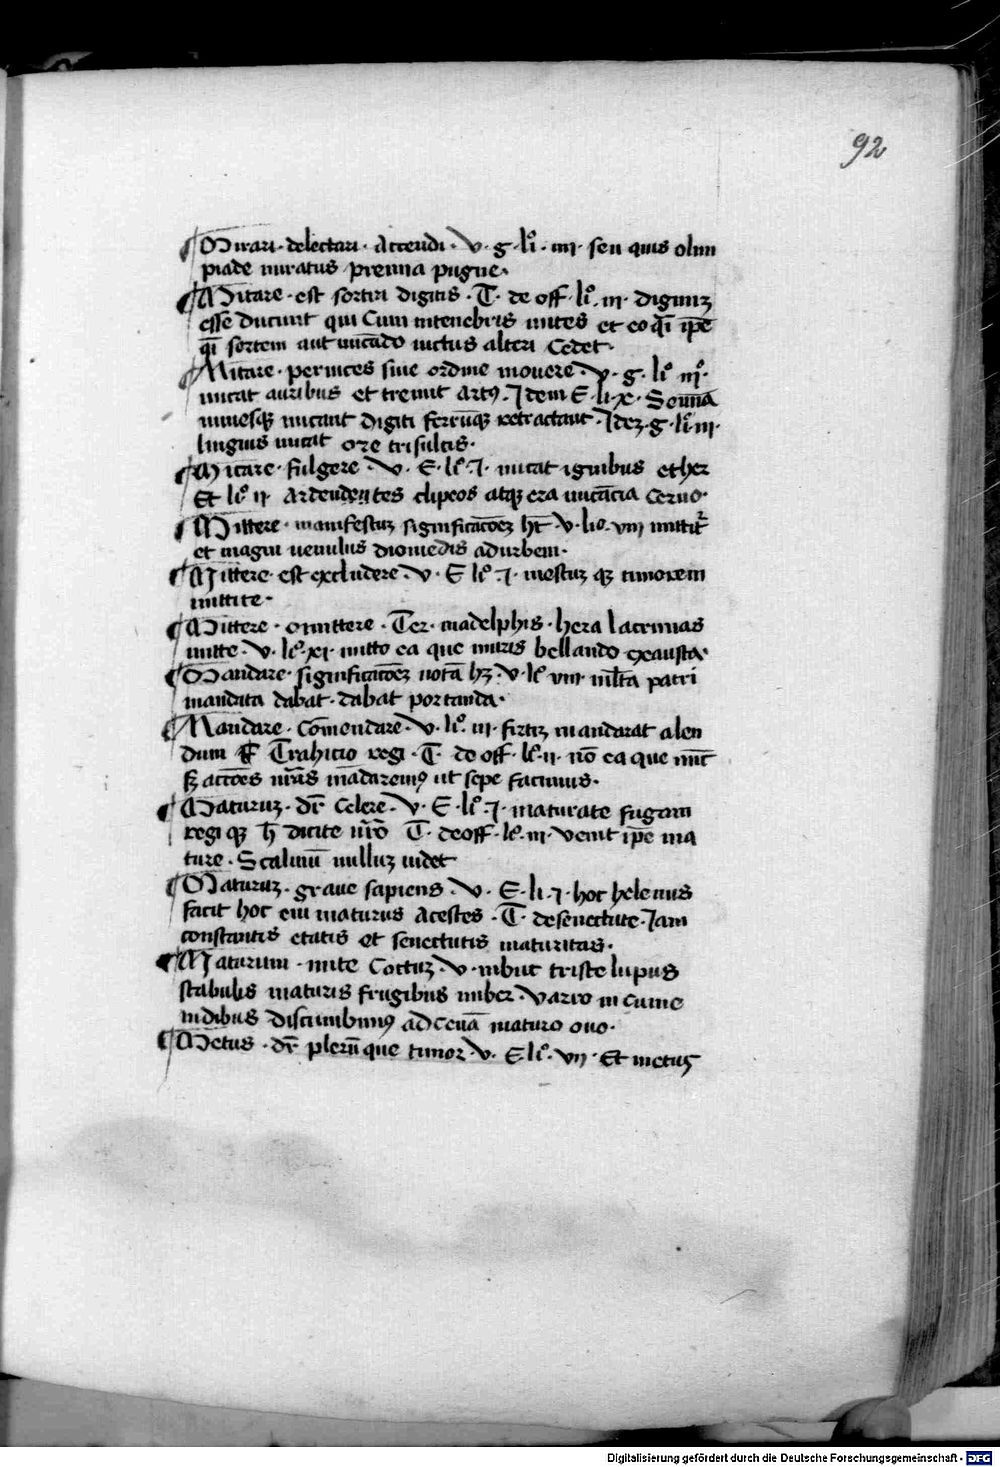 92
Mirari · delectari · Accendi · V · g · li͛ · iiii · seu quis olim
piade miratus premia pugne ·
Micare · est sortiri digitis · T̅ · de off · li͛ · iii · dignuz
esse ducunt qui Cum intenebris mices et eo qͥ ip̅e
qͥ sortem aut micādo victus alteri Cedet ·
Micare · pernices siue ordine mouere · V · g · li͛ iii͛ ·
micat auribus et tremit Artꝰ · Idem E · li · x · Semīa
nimesqꝫ micant digiti ferrūqꝫ retractant · Idez · g · li͛ · iii ·
linguis micat ore trisulcis ·
Micare · fulgere · V · E · li͛ · I · micat ignibus ether
Et li͛ ii · Ardendentes clipeos atqꝫ era micācia Cerno ·
Mittere · manifestuz significacōez hꝫ · V · lio · viii mittit᷑
et magni uenulus diomedis adurbem ·
Mittere · est excludere · V · E li͛ · I · mestuz qꝫ timorem
mittite ·
Mittere · omittere · Ter̅ · inadelphis · hera lacrimas
mitte · V · li͛ · xi · mitto ea que muris bellando exausta ·
Mandare · significacōez notā hꝫ · V · li͛ viii ml̅ta patri
mandata dabat · dabat portanda ·
Mandare · Cōmendare · V · li͛ · iii · firtiz mandarat alen
dum Trahicio regi · T̅ · de off · li͛ · ii · nō ea que nūc
sꝫ accōes nr̅as mādaremꝰ ut sepe facimus ·
Maturuz · dr̅ Celere · V · E · li͛ · I · maturate fugam
regi qꝫ h̅ dicite ur̅o T̅ · deoff · li͛ · iii · venit ip̅e ma
ture · Scalmū nulluz uidet
Maturuz · graue sapiens · V · E · li · I · hoc helenus
facit hoc eui maturus Acestes · T̅ · desenectute · Iam
constantis etatis et senectutis maturitas ·
Maturum · mite Coctuz · V · inbuc triste lupus
stabulis maturis frugibus imber · Varro in cume
nidibus discumbimꝰ adcenā maturo ouo ·
Metus · dr̅ plerūque timor · V · E · li͛ · vii · Et metus
Digitalisierung gefördert durch die Deutsche Forschungsgemeinschaft - DFG